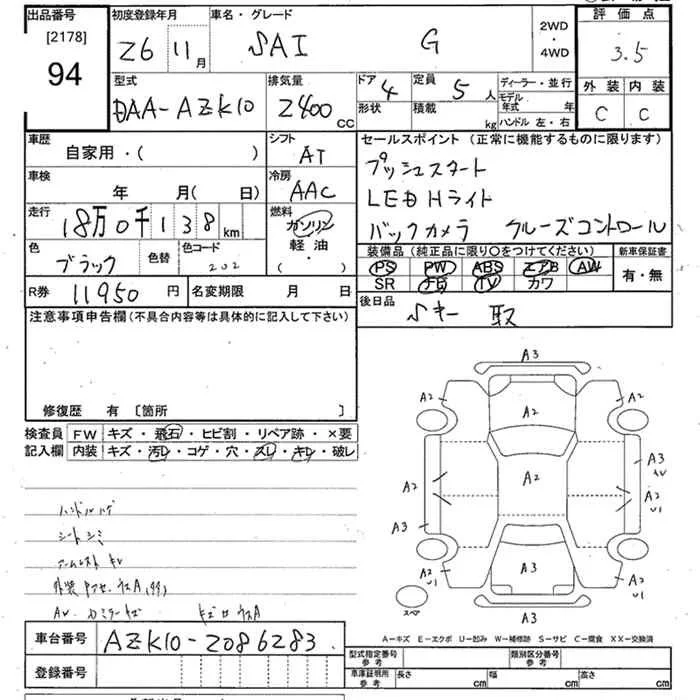 出品番号 初度登録年月 車名・グレード 2WD ・ 4WD 評価点
[2178]
94 26 11月 SAI G 3.5
型式 排気量 ドア 4 定員 5人 ディーラー・並行 外装 内装
DAA-AZK10 2400 CC 形状 積載 kg モデル年式 年 ハンドル 左・右 C C
車歴 シフト セールスポイント (正常に機能するものに限ります)
自家用・( ) AT プッシュスタート
車検 冷房 LED Hライト
年 月( 日) AAC バックカメラ クルーズコントロール
走行 燃料
18万0千138km ガソリン 軽油 ・( )
色 色替 色コード 装備品 (純正品に限り〇をつけてください) 新車保証書
ブラック 202 PS PW ABS エアB AW 有・無
SR ナビ TV カワ
R券 11950円 名変期限 月 日 後日品
Sキー 取
注意事項申告欄 (不具合内容等は具体的に記入して下さい)
修復歴 有 〔箇所 〕
検査員 FW キズ・飛石・ヒビ割・リペア跡・×要
記入欄 内装 キズ・汚レ・コゲ・穴・スレ・キレ・破レ
ハンドルハゲ
シートシミ
アームレスト キレ
A3
A2 A2 A2
A2 A2 A3
A2 U1
A3
A2 U1 A3 A2 U1
スペア A3
A-キズ E-エクボ U-凹み W-補修跡 S-サビ C-腐食 XX-交換済
車台番号 AZK10-2086283
登録番号
型式指定番号 参考 類別区分番号 参考
車庫証明所 参考 長さ cm 幅 cm 高さ cm